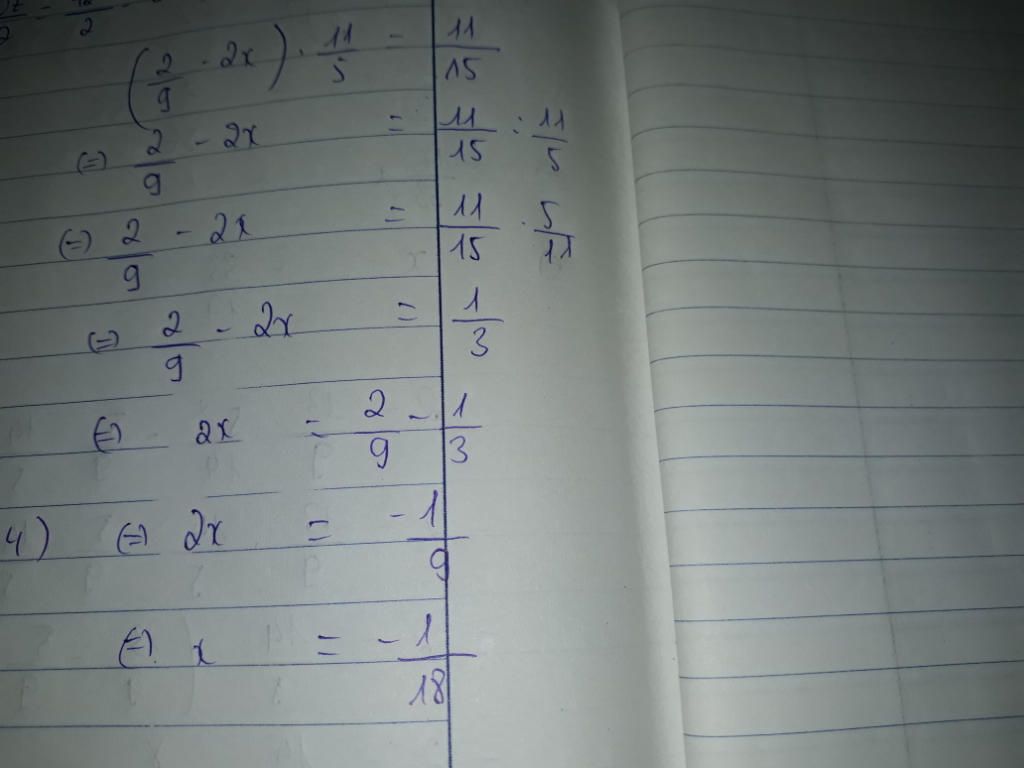 (2/9 - 2x) · 11/5 = 11/15
(=) 2/9 - 2x = 11/15 : 11/5
(=) 2/9 - 2x = 11/15 · 5/11
(=) 2/9 - 2x = 1/3
(=) 2x = 2/9 - 1/3
4) (=) 2x = -1/9
(=) x = -1/18